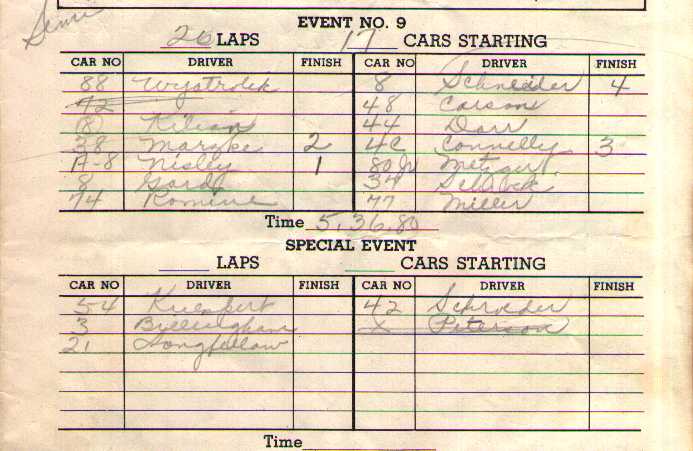 Semi
EVENT NO. 9
20 LAPS 17 CARS STARTING
CAR NO DRIVER FINISH CAR NO DRIVER FINISH
88 Wystrolek 8 Schneider 4
42 48 Carson
(8) Kilian 44 Darr
38 Marzke 2 4C Connelly 3
A-8 Nisley 1 80 Metzger
8 34
74 Romine 77 Miller
Time 5,36.80
SPECIAL EVENT
LAPS CARS STARTING
CAR NO DRIVER FINISH CAR NO DRIVER FINISH
54 42 Schroeder
3 Billingham X Peterson
21 Longfellow
Time